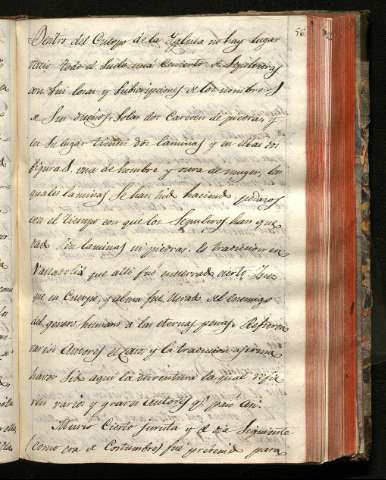 56
Dentro del Cuerpo de la Yglesia no hay lugar
todo el suelo está cubierto de Sepulcros
con sus losas y Subscripciones de los nombres
de Sus dueños. Solas dos Carecen de piedras, y
en Su lugar tienen dos laminas y en ellas dos
figuras, una de hombre y otra de muger, los
quales laminas Se han ido haciendo pedazos
con el tiempo con que los Sepulcros han que
dado Sin laminas ni piedras. Es tradicion en
que alli fue enterrado cierto
que en Cuerpo, y alma fue llevado del Enemigo
del genero humano a las eternas penas. Refieren
varios Autores el caso y la tradicion afirma
haver Sido aqui la
varios y graves autores qe. pasó asi.
Murio Cierto Jurista y el dia Siguiente
(como era de Costumbre) fue para